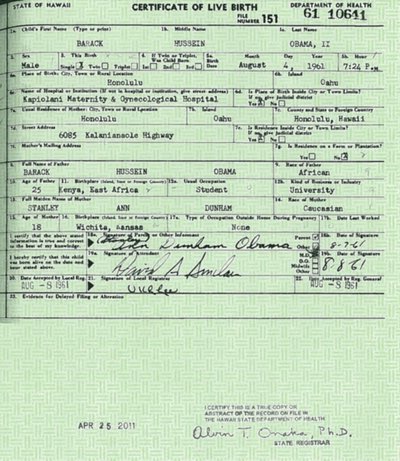 STATE OF HAWAII CERTIFICATE OF LIVE BIRTH DEPARTMENT OF HEALTH
FILE NUMBER 151 61 10641
1a. Child's First Name (Type or print) 1b. Middle Name 1c. Last Name
BARACK HUSSEIN OBAMA, II
2. Sex 3. This Birth 4. If Twin or Triplet, Was Child Born 5a. Birth Date Month Day Year 5b. Hour
Male Single Twin Triplet 1st 2nd 3rd August 4, 1961 7:24 P.M.
6a. Place of Birth: City, Town or Rural Location 6b. Island
Honolulu Oahu
6c. Name of Hospital or Institution (If not in hospital or institution, give street address) 6d. Is Place of Birth Inside City or Town Limits? If no, give judicial district
Kapiolani Maternity & Gynecological Hospital Yes No
7a. Usual Residence of Mother: City, Town or Rural Location 7b. Island 7c. County and State or Foreign Country
Honolulu Oahu Honolulu, Hawaii
7d. Street Address 7e. Is Residence Inside City or Town Limits? If no, give judicial district
6085 Kalanianaole Highway Yes No
7f. Mother's Mailing Address 7g. Is Residence on a Farm or Plantation?
Yes No
8. Full Name of Father 9. Race of Father
BARACK HUSSEIN OBAMA African
10. Age of Father 11. Birthplace (Island, State or Foreign Country) 12a. Usual Occupation 12b. Kind of Business or Industry
25 Kenya, East Africa Student University
13. Full Maiden Name of Mother 14. Race of Mother
STANLEY ANN DUNHAM Caucasian
15. Age of Mother 16. Birthplace (Island, State or Foreign Country) 17a. Type of Occupation Outside Home During Pregnancy 17b. Date Last Worked
18 Wichita, Kansas None
I certify that the above stated information is true and correct to the best of my knowledge. 18a. Signature of Parent or Other Informant Parent Other 18b. Date of Signature
(Stanley) Ann Dunham Obama 8-7-61
I hereby certify that this child was born alive on the date and hour stated above. 19a. Signature of Attendant M.D. D.O. Midwife Other 19b. Date of Signature
David A Sinclair 8-8-61
20. Date Accepted by Local Reg. 21. Signature of Local Registrar 22. Date Accepted by Reg. General
AUG -8 1961 AUG -8 1961
23. Evidence for Delayed Filing or Alteration
APR 25 2011
I CERTIFY THIS IS A TRUE COPY OR
ABSTRACT OF THE RECORD ON FILE IN
THE HAWAII STATE DEPARTMENT OF HEALTH
Alvin T. Onaka, Ph.D.
STATE REGISTRAR